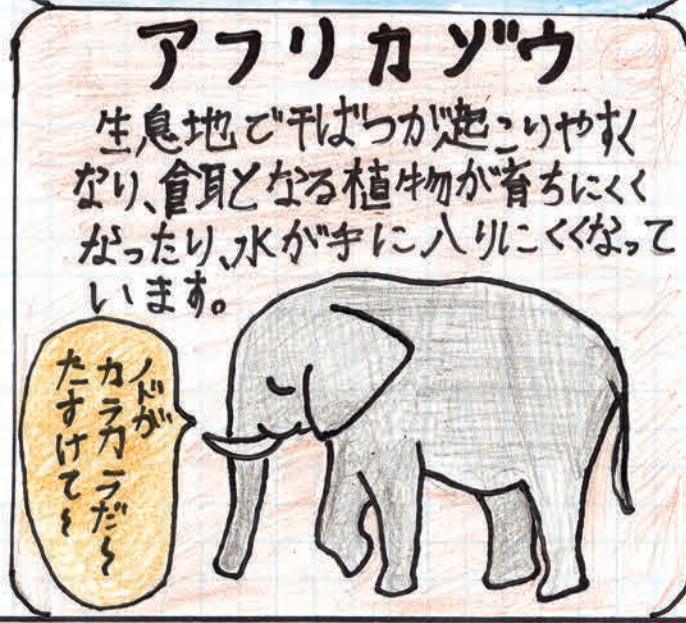 アフリカゾウ
生息地で干ばつが起こりやすく
なり、餌となる植物が育ちにくく
なったり、水が手に入りにくくなって
います。
ノドが
カラカラだ〜
たすけて〜